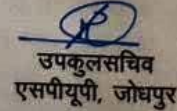 उपकुलसचिव
एसपीयूपी, जोधपुर